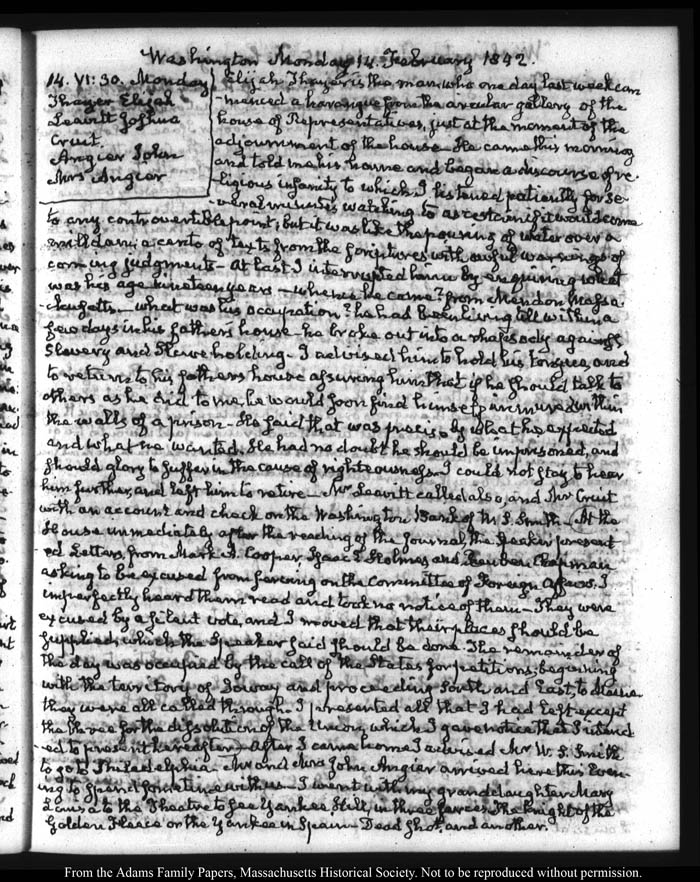 Washington Monday 14. February 1842.
14. VI:30. Monday
Thayer Elijah
Leavitt Joshua
Cruit.
Angier John
Mrs Angier
Elijah Thayer is the man who one day last week com
-menced a harangue from the circular gallery of the
house of Representatives, just at the moment of the
adjournment of the house. He came this morning
and told me his name and began a discourse of re-
ligious insanity to which I listened patiently for se-
-veral minutes watching to ascertain if it would come
to any controvertible point; but it was like the pouring of water over a
mill dam: a canto of texts from the scriptures with awful warnings of
coming judgments — At last I interrupted him by enquiring what
was his age nineteen years — whence he came? from Mendon Massa-
chusetts — what was his occupation? he had been living till within a
few days in his fathers house — he broke out into a rhapsody against
Slavery and Slave holding — I advised him to hold his tongue, and
to return to his fathers house assuring him that if he should talk to
others as he did to me, he would soon find himself immured within
the walls of a prison — He said that was precisely what he expected
and what he wanted. He had no doubt he should be imprisoned, and
should glory to suffer in the cause of righteousness. I could not stay to hear
him further, and left him to retire — Mr Leavitt called also, and Mr Cruit
with an account and check on the Washington Bank of W. S. Smith — At the
House immediately after the reading of the Journal, the Speaker present
-ed Letters, from Mark A. Cooper, Isaac E Holmes, and Reuben Chapman
asking to be excused from serving on the Committee of Foreign Affairs. I
imperfectly heard them read and took no notice of them — They were
excused by a silent vote, and I moved that their places should be
supplied, which the Speaker said should be done. The remainder of
the day was occupied by the call of the States for petitions; beginning
with the territory of Ioway and proceeding South and East, to Maine
they were all called through. I presented all that I had left except
the for the dissolution of the Union, which I gave notice that I intend
-ed to present hereafter — After I came home I advised Mr W. S. Smith
to go to Philadelphia. Mr and Mrs John Angier arrived here this Even-
ing to spend sometime with us — I went with my granddaughter Mary
Louisa to the Theatre to see Yankee Hill, in three farces. The knight of the
Golden Fleece or the Yankee in Spain — Dead Shot, and another.
From the Adams Family Papers, Massachusetts Historical Society. Not to be reproduced without permission.